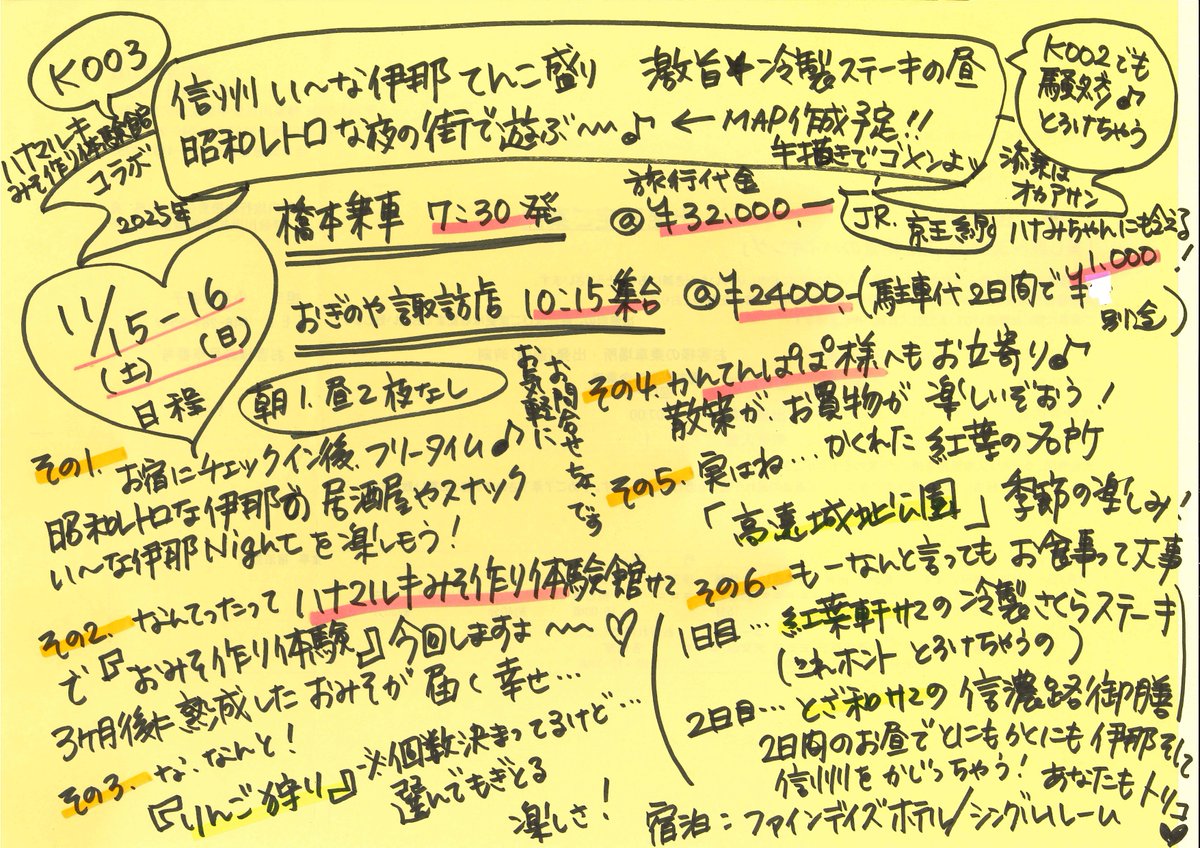 K003
ハナマルキ
みそ作り体験館
コラボ
信州 い〜な伊那 てんこ盛り 激旨冷製ステーキの昼
昭和レトロな夜の街で遊ぶ〜♪ ← MAP作成予定!!
手描きでゴメンよ
K002でも
騒然♪
とろけちゃう
添乗は
オカアサン
2025年
11/15-16
(土) (日)
日程
橋本乗車 7:30発
旅行代金
@¥32,000-
JR. 京王線
ハナみちゃんにも会える!
おぎのや諏訪店 10:15集合
@¥24000-(駐車代2日間で¥1,000
別途)
朝1.昼2夜なし
お問合せを、
お気軽に です
その1. お宿にチェックイン後、フリータイム♪
昭和レトロな伊那の居酒屋やスナック
い〜な伊那Nightを楽しもう!
その2. なんてったって ハナマルキみそ作り体験館サマ
で『おみそ作り体験』今回しますよ〜♡
3ヶ月後に熟成したおみそが届く幸せ…
その3. な、なんと!
『りんご狩り』※個数決まってるけど…
選んでもぎとる
楽しさ!
その4. かんてんぱぱ様へもお立寄り♪
散策が お買物が 楽しいぞおう!
その5. 実はね… かくれた紅葉の名所
「高遠城址公園」季節の楽しみ!
その6. もーなんと言ってもお食事って大事
1日目… 紅葉軒サマの冷製さくらステーキ
(これホントとろけちゃうの)
2日目… とざ和サマの信濃路御膳
2日間のお昼でとにもかくにも伊那そして
信州をかじっちゃう! あなたもトリコ♥
宿泊:ファインデイズホテル/シングルルーム